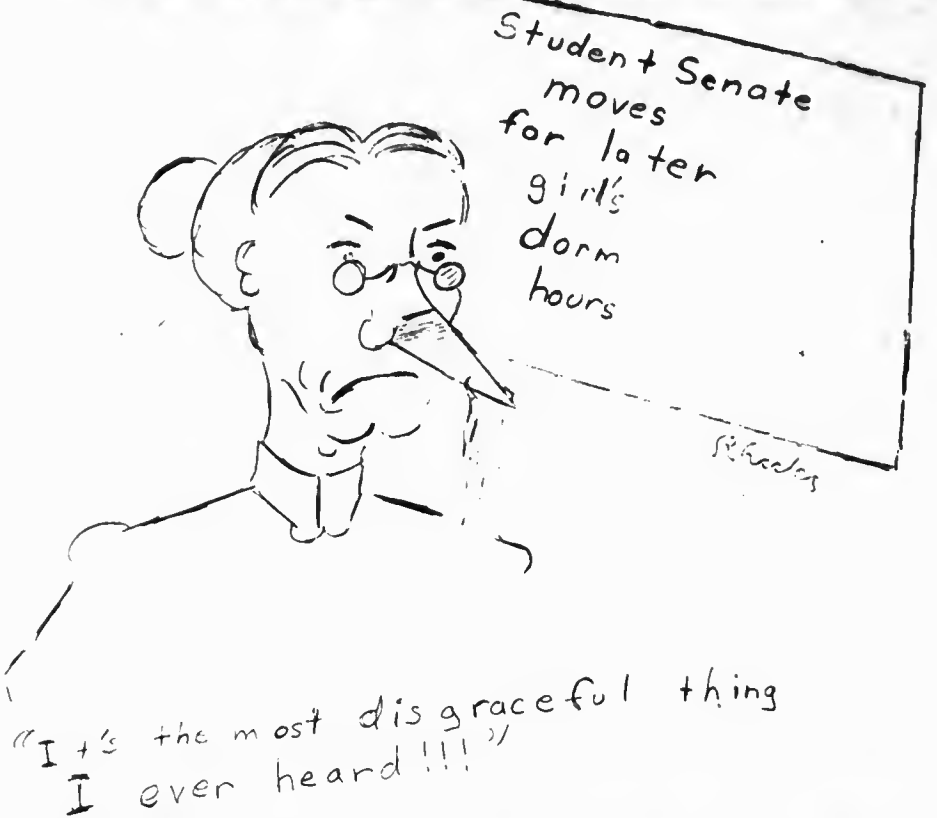 Student Senate
moves
for later
girl's
dorm
hours
"It's the most disgraceful thing
I ever heard!!!"